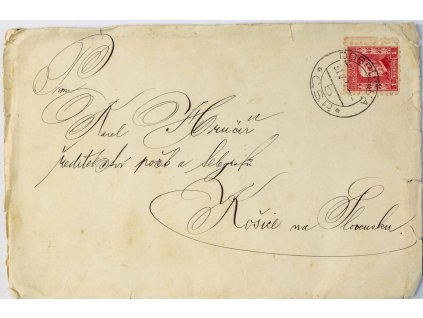 Pan
Karel Hrnčíř
ředitelství pošt a telegrafů
Košice na Slovensku.
ČSR